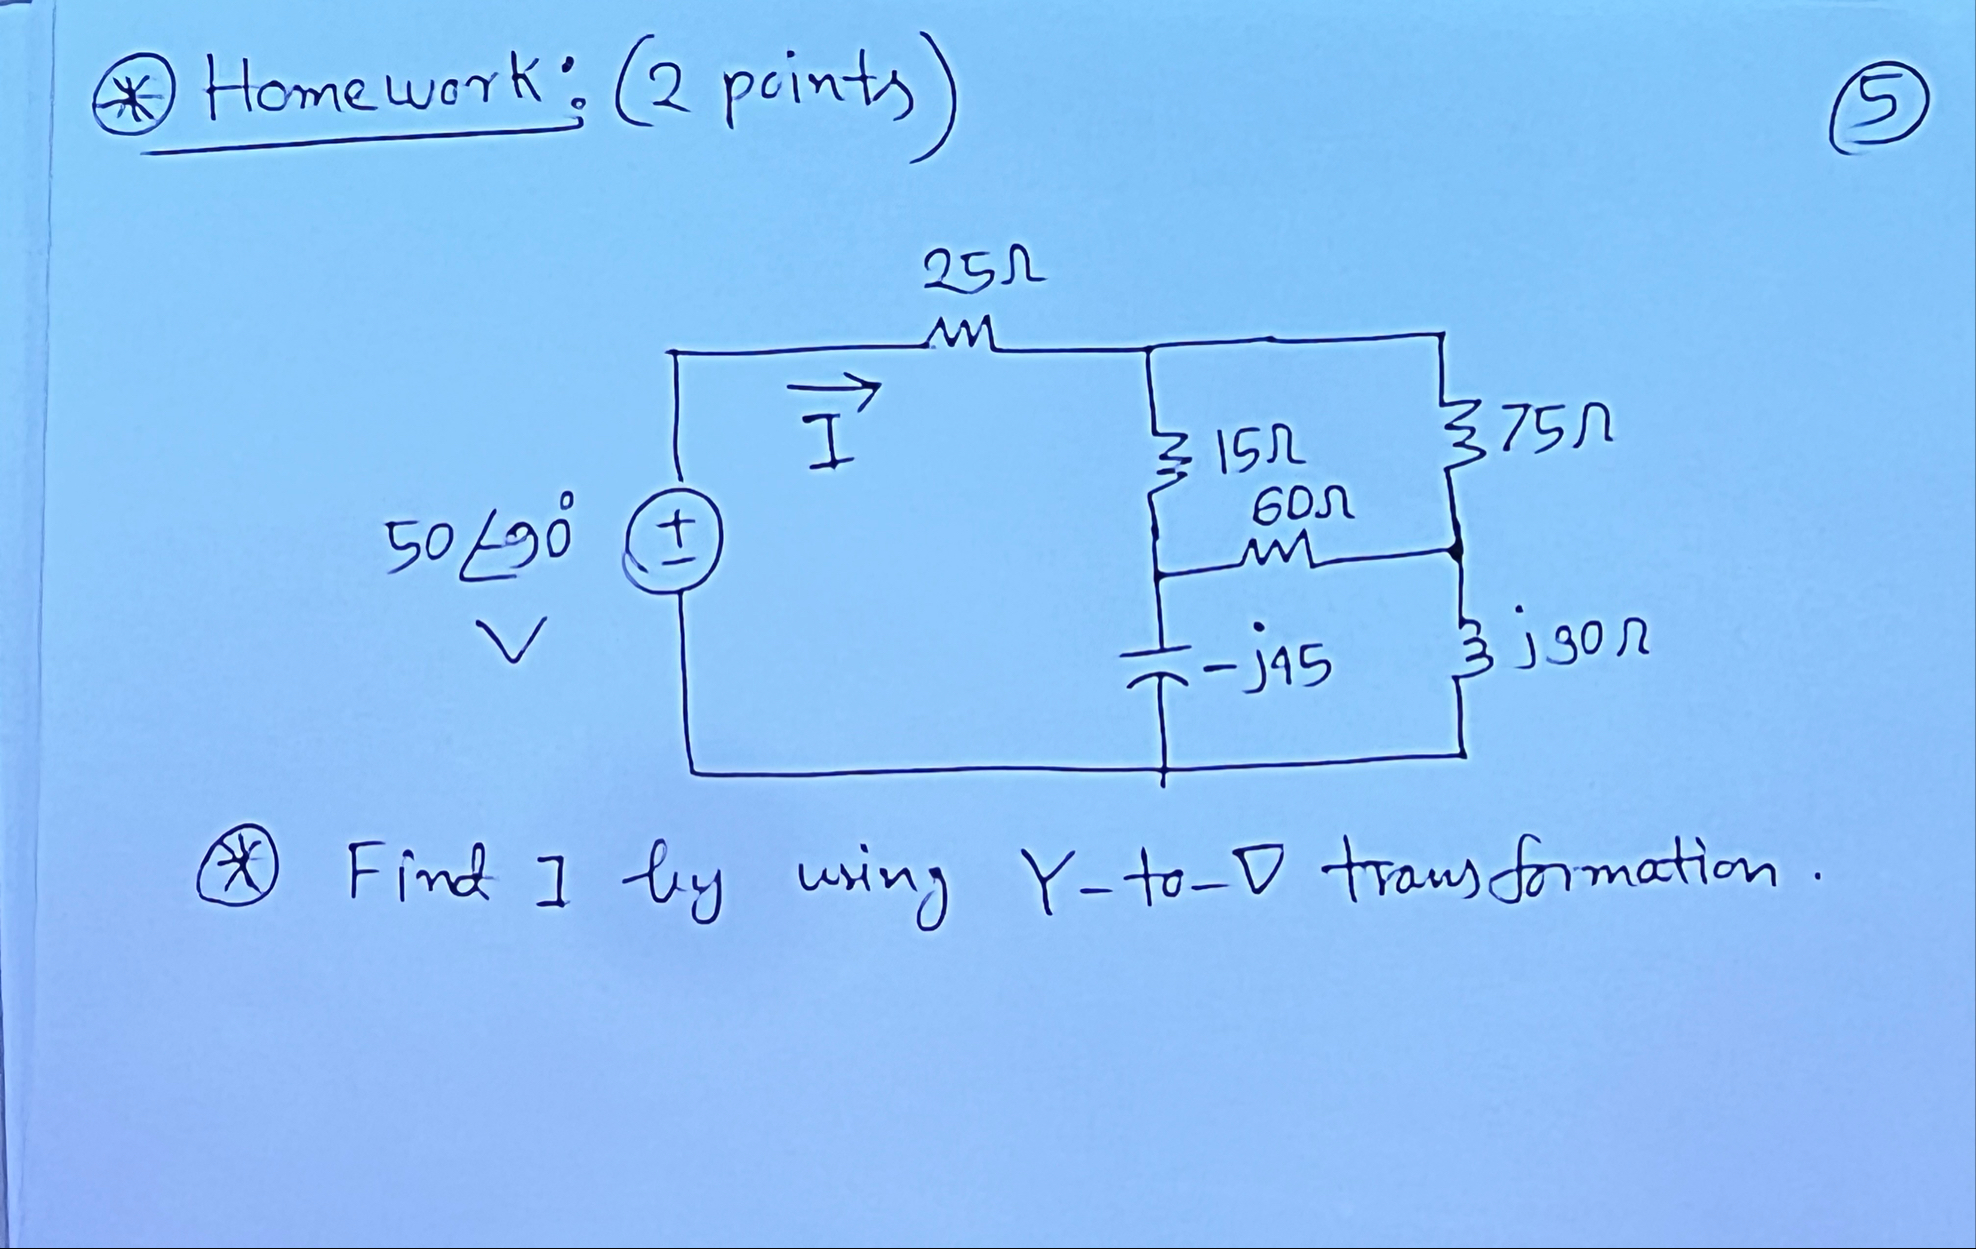 * Homework: (2 points)
5
25Ω
I
15Ω
75Ω
60Ω
50∠90°
V
-j45
j90Ω
* Find I by using Y-to-∇ transformation.